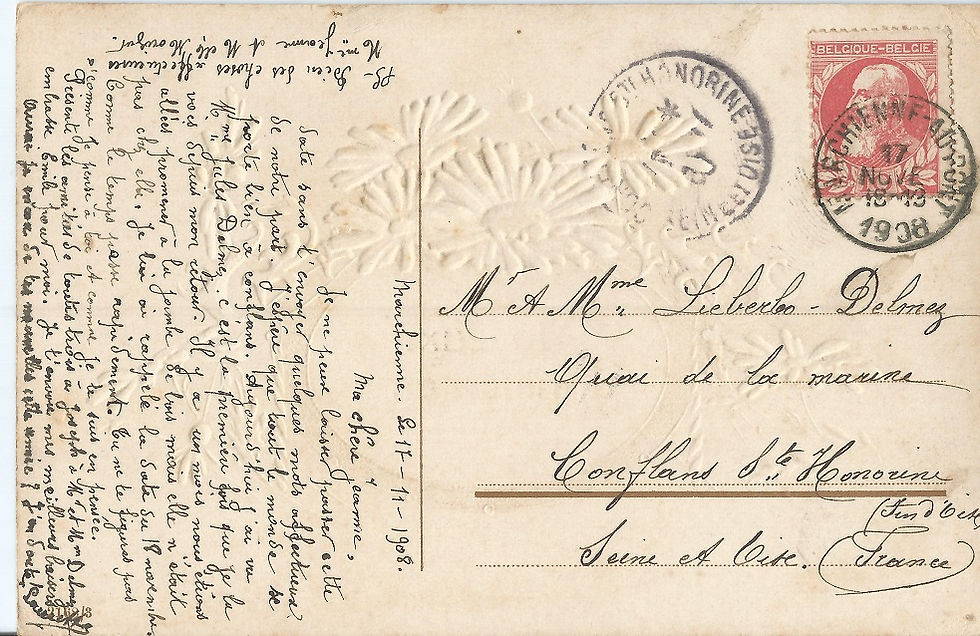 Marchienne. Le 17-11-1908.
Ma chère Jeanne,
Je ne peux laisser passer cette
date sans t'envoyer quelques mots affectueux
de notre part. J'espère que tout le monde se
porte bien à Conflans. Aujourd'hui j'ai vu
Mme Jules Delmez, c'est la première fois que je la
vois depuis mon retour. Il y a un mois nous étions
allées promener à la jambe de bois mais elle n'était
pas chez elle. Je lui ai rappelé la date du 18 novembre.
Comme le temps passe rapidement. Tu ne te figures pas
comme je pense à toi et comme je te suis en pensée.
Présente les amitiés de toutes trois à Joseph à Mr et Mme Delmez
embrasse Emile pour moi. Je t'envoie mes meilleurs baisers
PS. Bien des choses affectueuses
à Mme Jeanne et Melle
BELGIQUE-BELGIE
MARCHIENNE-AU-PONT
17
NOVE
1908
HONORINE
OISE
Mr & Mme Lieberbo-Delmez
Quai de la marine
Conflans Ste Honorine
(Fin d'Oise)
Seine et Oise. (France)